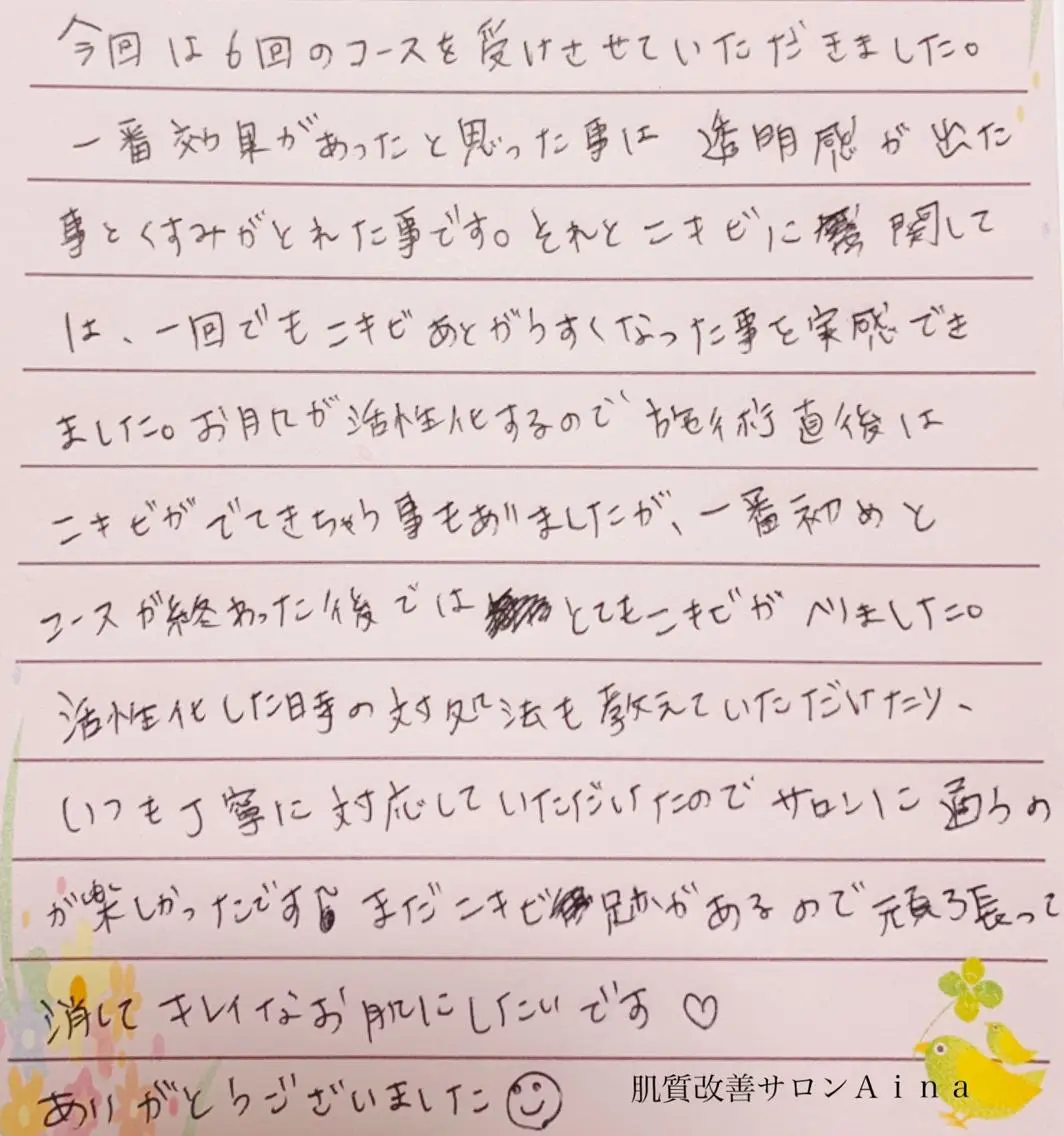 今回は6回のコースを受けさせていただきました。
一番効果があったと思った事は 透明感が出た
事とくすみがとれた事です。それとニキビに 関して
は、一回でもニキビあとがうすくなった事を実感でき
ました。お肌が活性化するので施術直後は
ニキビがでてきちゃう事もありましたが、一番初めと
コースが終わった後では とてもニキビが へりました。
活性化した時の対処法も教えていただけたり、
いつも丁寧に対応していただいたのでサロンに通うの
が楽しかったです まだニキビ跡があるので頑張って
消してキレイなお肌にしたいです♡
ありがとうございました
肌質改善サロンAina